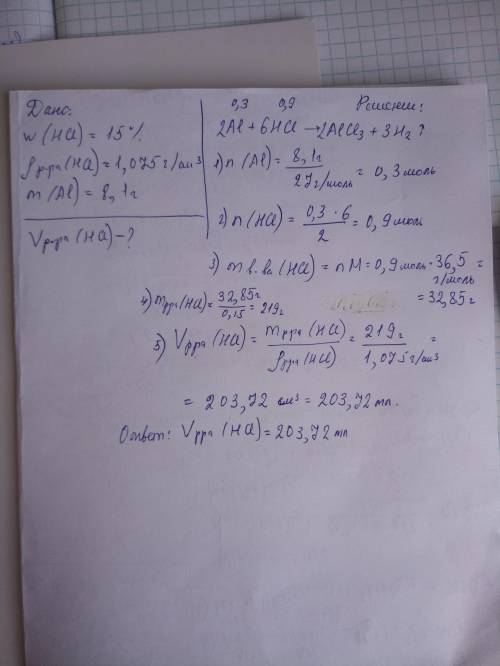 Дано:
w(HCl) = 15%
ρр-ра(HCl) = 1,075 г/см³
m(Al) = 8,1г
Vр-ра(HCl) – ?
Решение:
0,3 0,9
2Al + 6HCl → 2AlCl₃ + 3H₂↑
1) n(Al) = 8,1г / 27г/моль = 0,3 моль
2) n(HCl) = 0,3 · 6 / 2 = 0,9 моль
3) m в.ва (HCl) = nM = 0,9 моль · 36,5 г/моль =
= 32,85г
4) mр-ра(HCl) = 32,85г / 0,15 = 219г
5) Vр-ра(HCl) = mр-ра(HCl) / ρр-ра(HCl) = 219г / 1,075г/см³ =
= 203,72 см³ = 203,72 мл.
Ответ: Vр-ра(HCl) = 203,72 мл